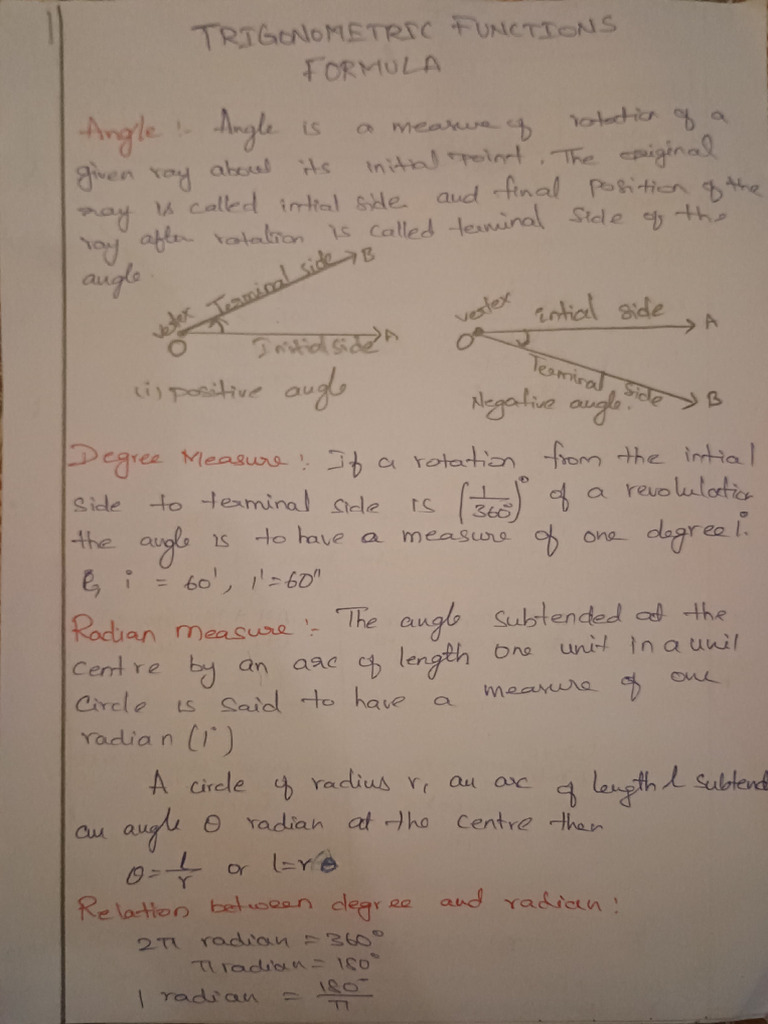 TRIGONOMETRIC FUNCTIONS
FORMULA
Angle :- Angle is a measure of rotation of a
given ray about its initial point. The original
ray is called intial side and final position of the
ray after rotation is called terminal side of the
angle.
vertex Terminal side B
O Initial side A
(i) positive angle
vertex intial side A
O Terminal side B
Negative angle.
Degree Measure :- If a rotation from the intial
side to terminal side is (1/360°)° of a revolulation
the angle is to have a measure of one degree 1°.
1° = 60', 1' = 60"
Radian measure :- The angle subtended at the
centre by an arc of length one unit in a unit
circle is said to have a measure of one
radian (1ᶜ)
A circle of radius r, an arc of length l subtend
an angle θ radian at the centre then
θ = l/r or l = rθ
Relation between degree and radian :
2π radian = 360°
π radian = 180°
1 radian = 180°/π